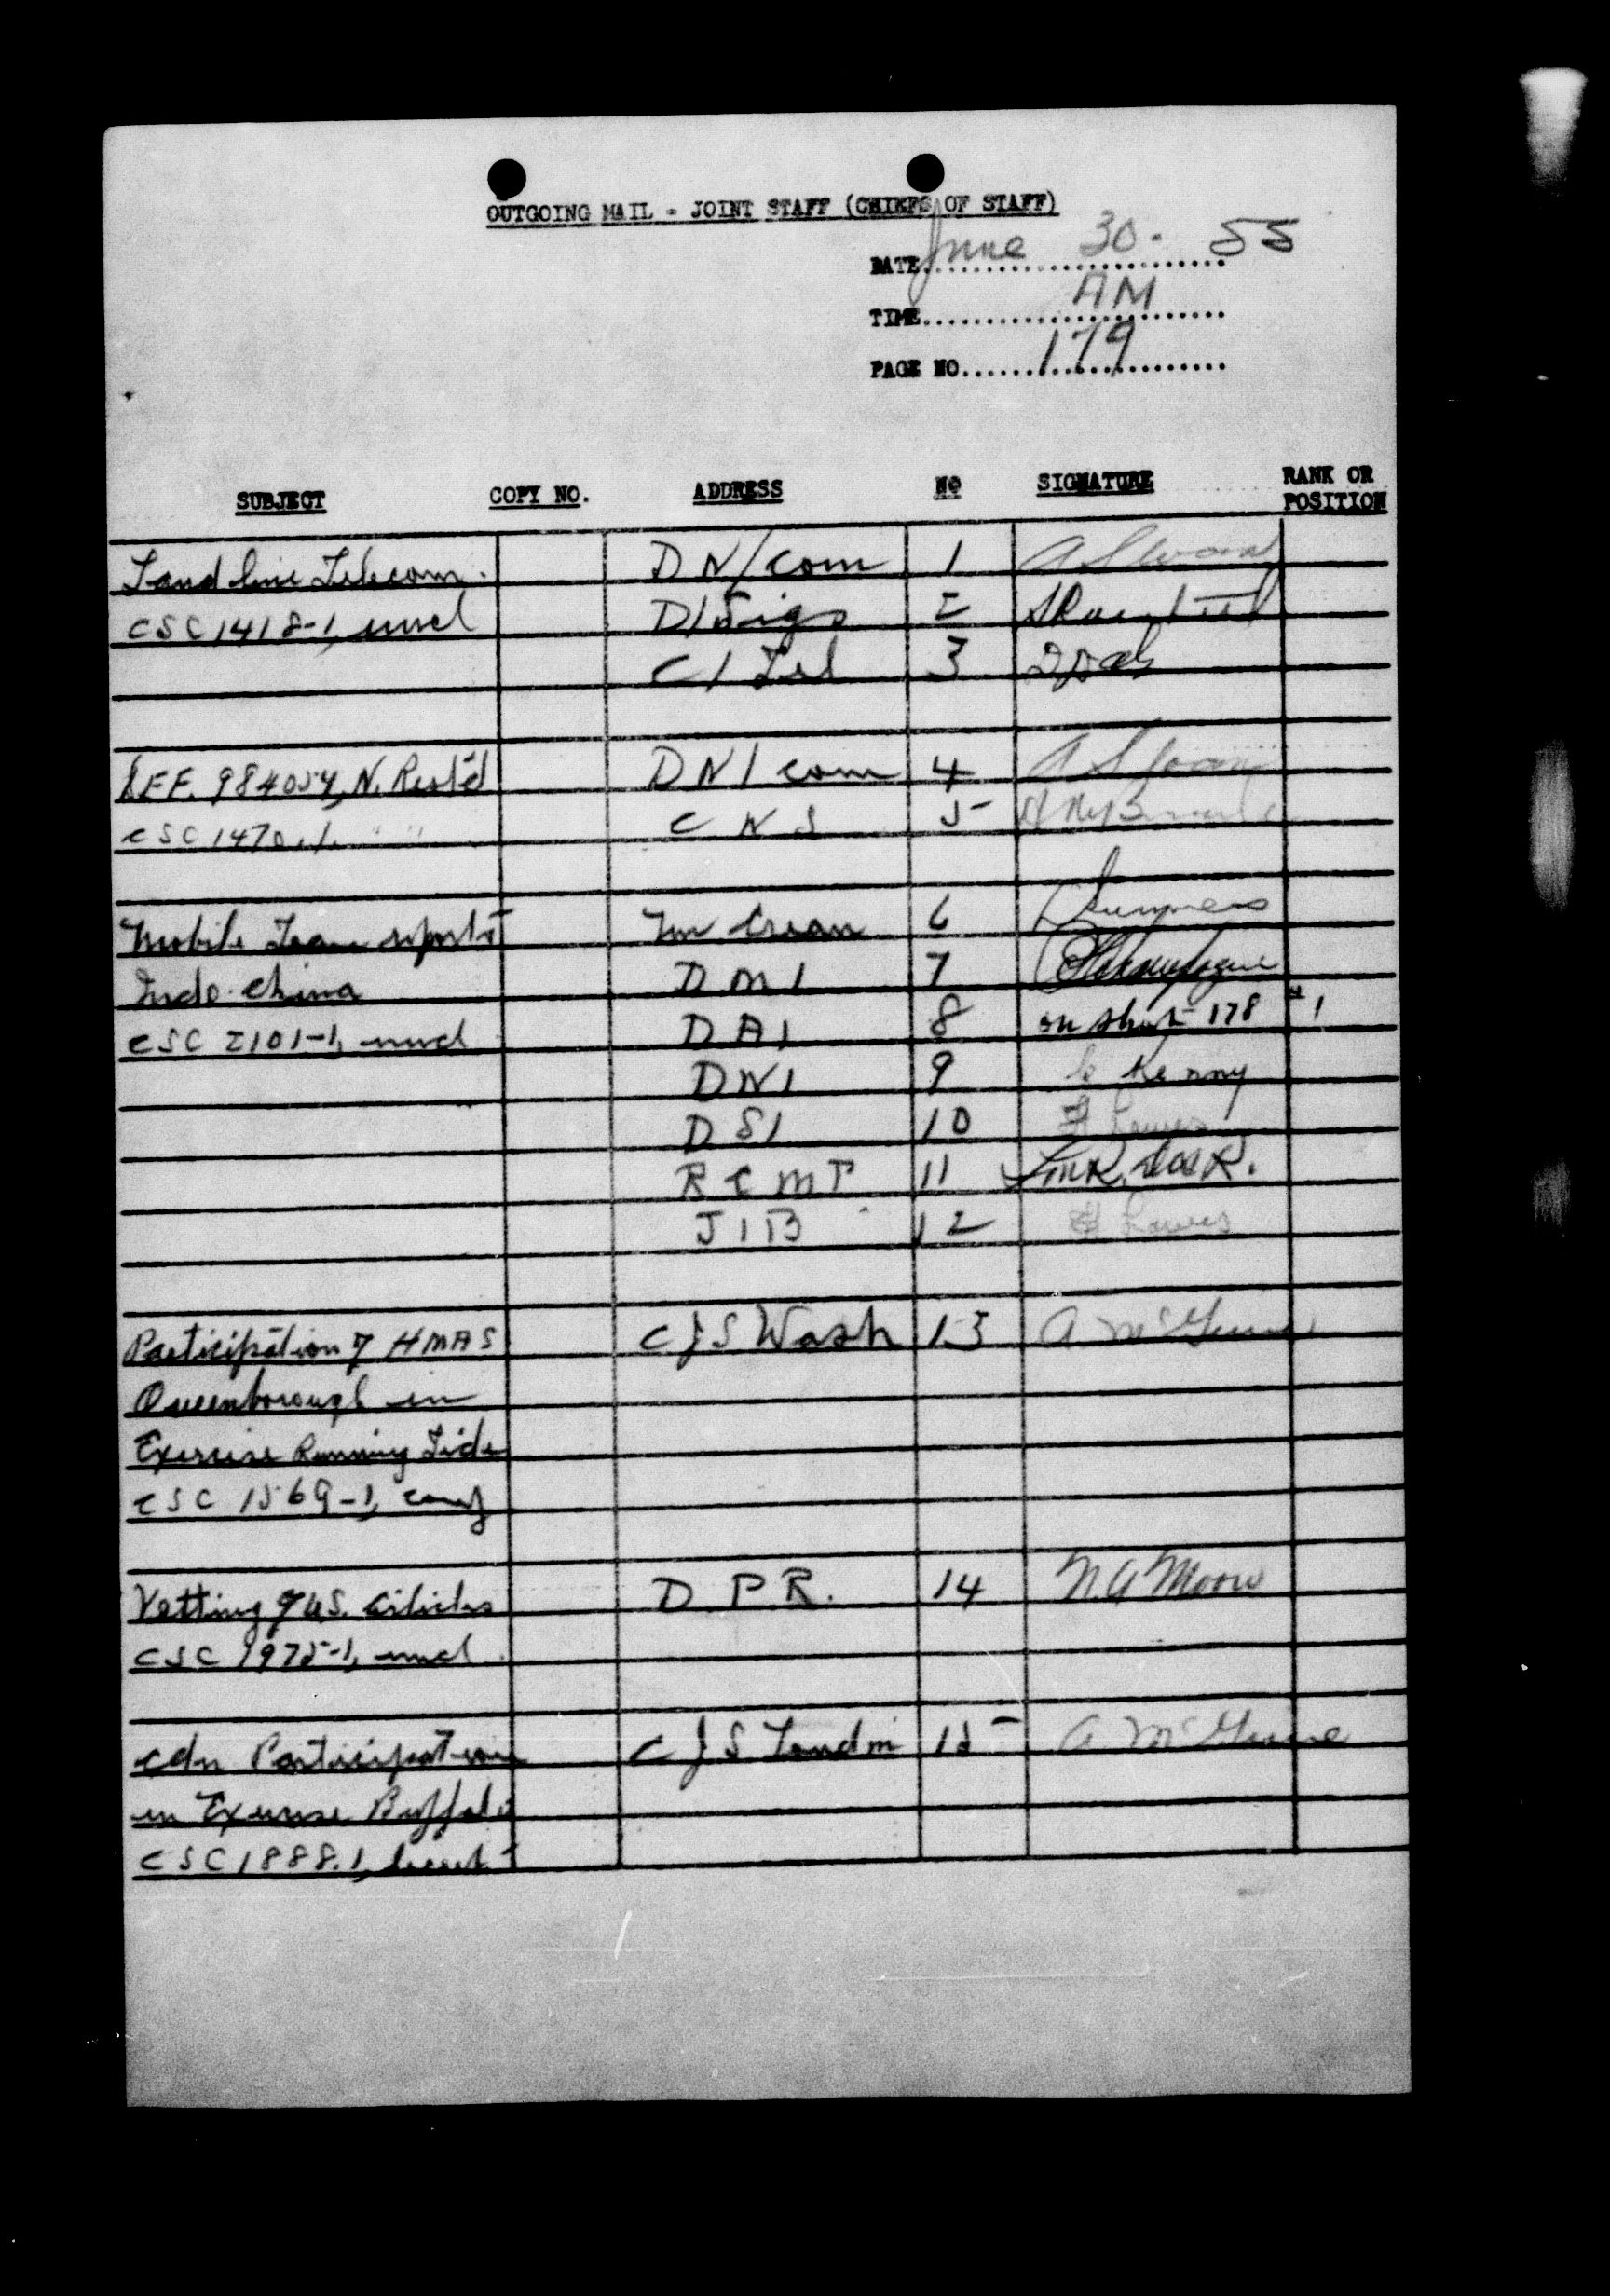 OUTGOING MAIL - JOINT STAFF (CHIEFS OF STAFF)
DATE June 30. 55
TIME AM
PAGE NO 179
SUBJECT COPY NO. ADDRESS NO SIGNATURE RANK OR POSITION
Land line Telecom. DN/com 1 A Sloan
CSC 1418-1, uncl D/Sigs 2
C/Tel 3
984054, N. Rest'd DN/com 4 A Sloan
CSC 1470-1. " " CNS 5
Mobile Team reports 6
Indo-China DMI 7
CSC 2101-1, uncl DAI 8 on sheet 178 #1
DNI 9 Kenny
DSI 10
RCMP 11
JIB 12
Participation of HMAS CJS Wash 13
Queenborough in
Exercise Running Tide
CSC 1569-1, conf
Vetting of U.S. articles D P R. 14 N.A Moore
CSC 1975-1, uncl
Cdn Participation CJS London 15
in Exercise Buffalo
CSC 1888.1, secret